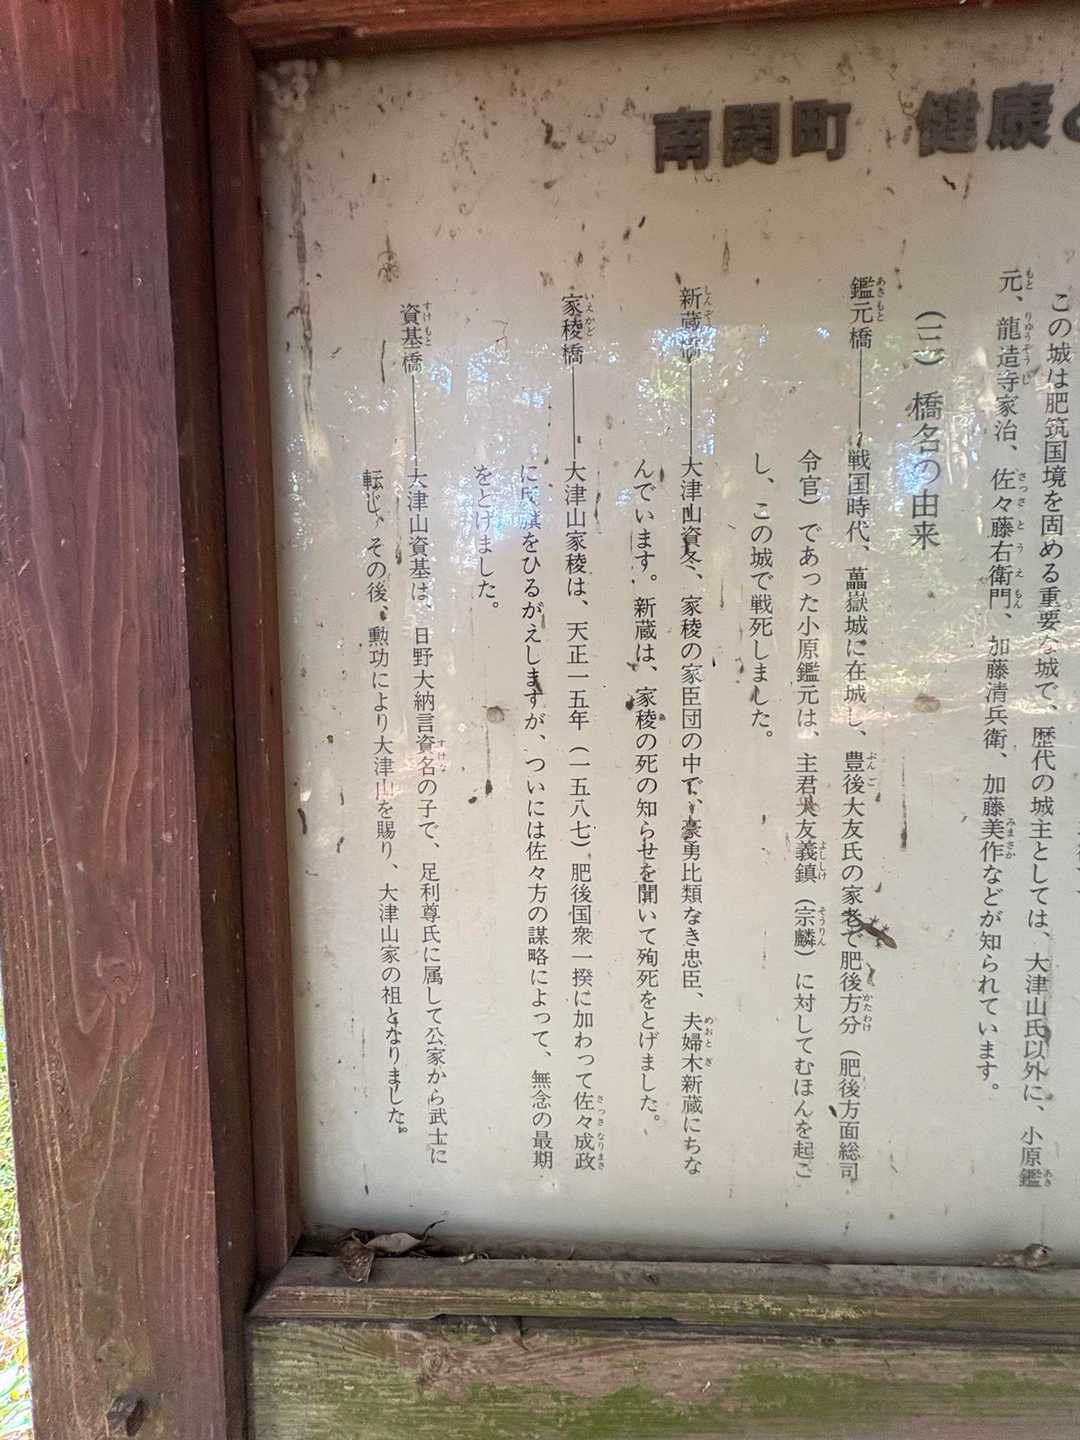 南関町 健康
この城は肥筑国境を固める重要な城で、歴代の城主としては、大津山氏以外に、小原鑑
元、龍造寺家治、佐々藤右衛門、加藤清兵衛、加藤美作などが知られています。
(三) 橋名の由来
鑑元橋――戦国時代、藟嶽城に在城し、豊後大友氏の家老で肥後方分(肥後方面総司
令官)であった小原鑑元は、主君大友義鎮(宗麟)に対してむほんを起こ
し、この城で戦死しました。
新蔵橋――大津山資冬、家稜の家臣団の中で、豪勇比類なき忠臣、夫婦木新蔵にちな
んでいます。新蔵は、家稜の死の知らせを聞いて殉死をとげました。
家稜橋――大津山家稜は、天正一五年(一五八七)肥後国衆一揆に加わって佐々成政
に旗をひるがえしますが、ついには佐々方の謀略によって、無念の最期
をとげました。
資基橋――大津山資基は、日野大納言資名の子で、足利尊氏に属して公家から武士に
転じ、その後、勲功により大津山を賜り、大津山家の祖となりました。